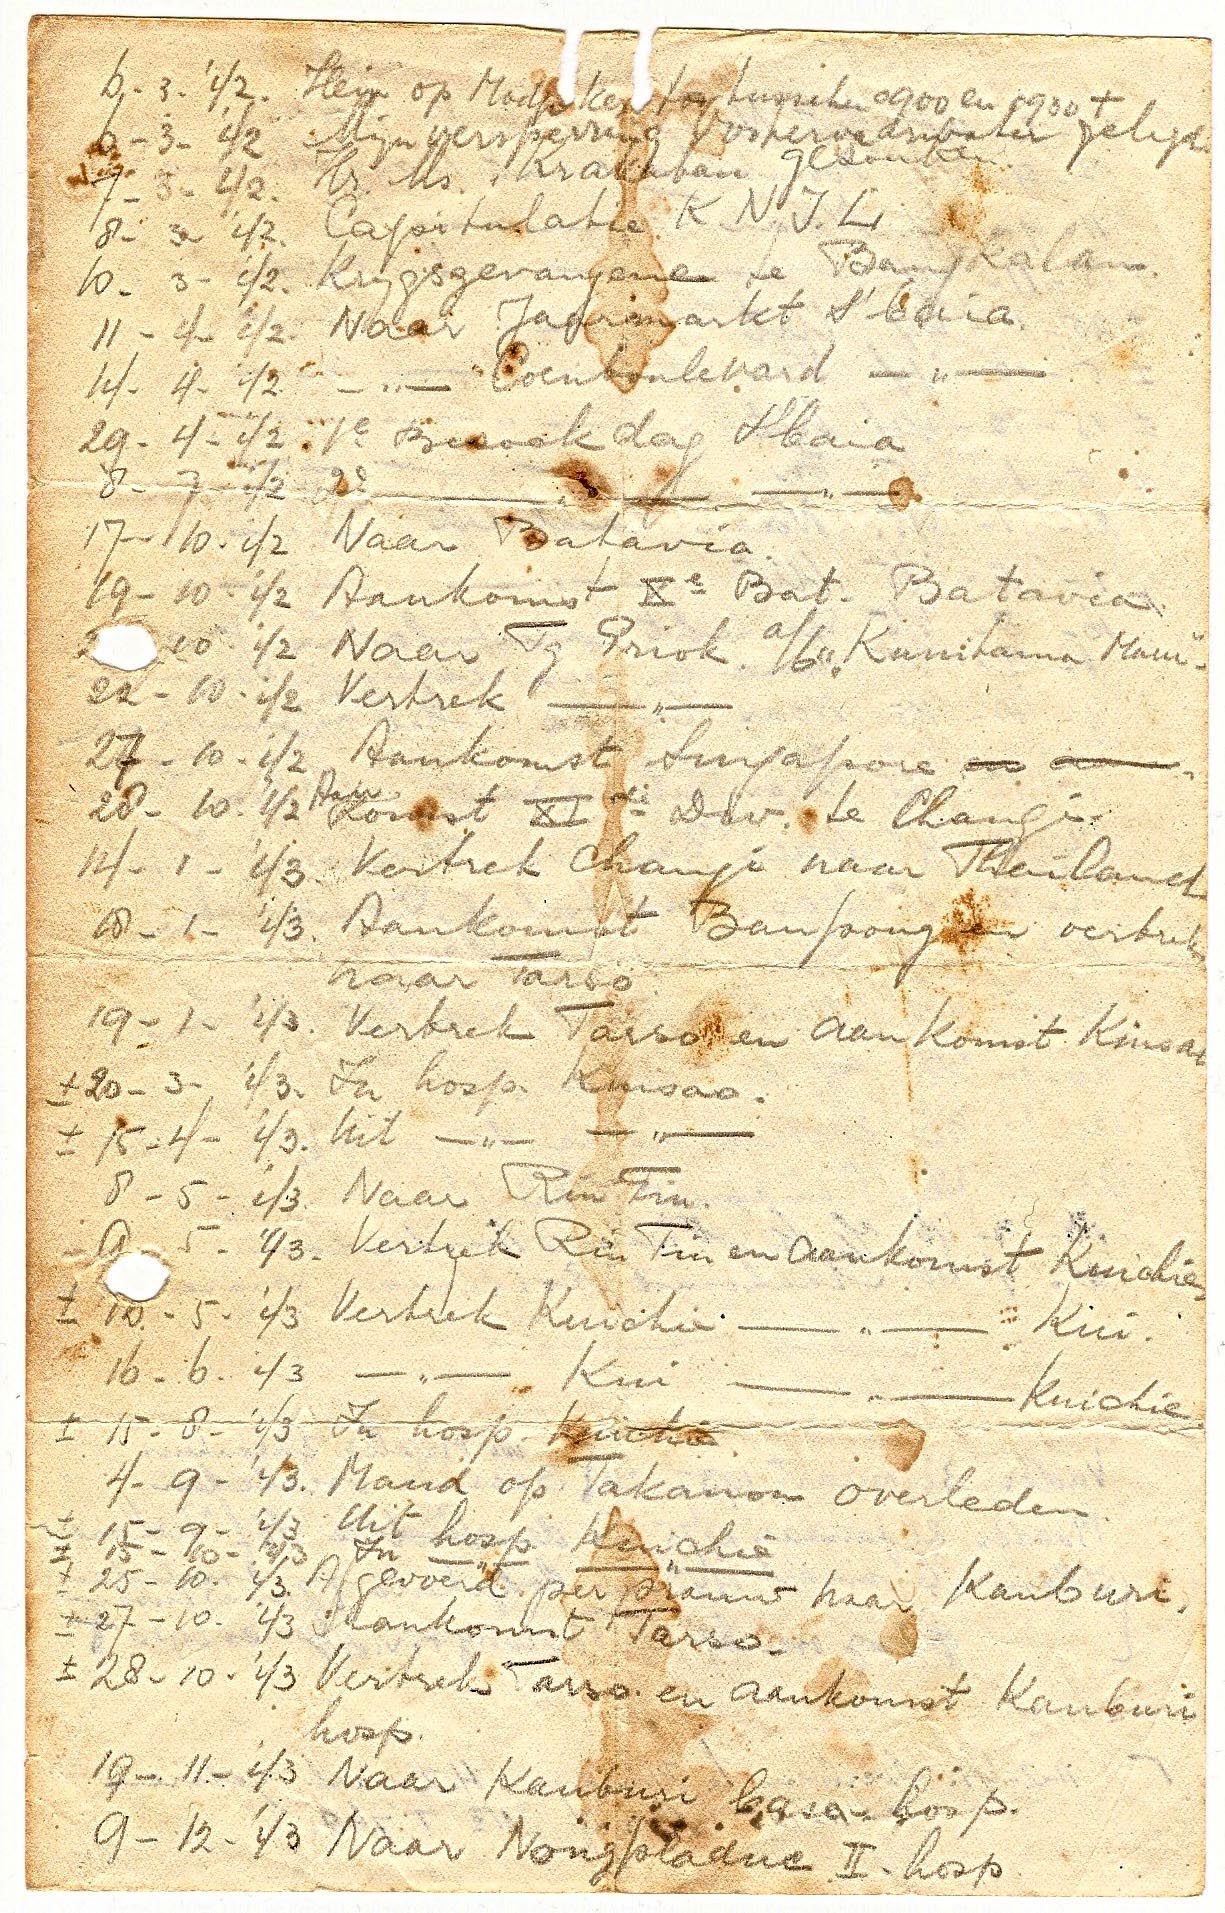 6-3-'42. Hein op Modjokerto tusschen 0900 en 0930 +
6-3-'42 Mijnversperring Oostervaarwater gelegd
7-3-'42. Hr. Ms. Krakatau gezonken.
8-3-'42. Capitulatie K.N.I.L.
10-3-'42. Krijgsgevangene te Bangkalan.
11-4-'42. Naar Jaarmarkt S'baia.
14-4-'42 —„— Coenboulevard —„—
29-4-'42. 1e Bezoekdag S'baia
8-7-'42 2e —„— —„—
17-10-'42 Naar Batavia.
19-10-'42 Aankomst Xe Bat. Batavia.
2 10-'42 Naar Tg Priok. a/b „Kunitama Maru".
22-10-'42 Vertrek —„—
27-10-'42 Aankomst Singapore
28-10-'42 Aankomst XIde Div. te Changi.
14-1-'43. Vertrek Changi naar Thailand
18-1-'43. Aankomst Banpong en vertrek
naar Tarso.
19-1-'43. Vertrek Tarso en aankomst Kinsao
± 20-3-'43. In hosp. Kinsao.
± 15-4-'43. Uit —„— —„—
8-5-'43. Naar Rin Tin.
9-5-'43. Vertrek Rin Tin en aankomst Kuichie
± 10-5-'43 Vertrek Kuichie —„— Kui.
16-6-'43 —„— Kui —„— Kuichie.
± 15-8-'43 In hosp. Kuichie.
4-9-'43. Maud op Takanon overleden.
± 15-9-'43 Uit hosp. Kuichie
± 15-10-'43 In —„— —„—
± 25-10-'43. Afgevoerd per prauw naar Kanburi.
± 27-10-'43 Aankomst Tarso.
± 28-10-'43 Vertrek Tarso en aankomst Kanburi
hosp.
19-11-'43 Naar Kanburi base-hosp.
9-12-'43 Naar Nongpladuc II-hosp.